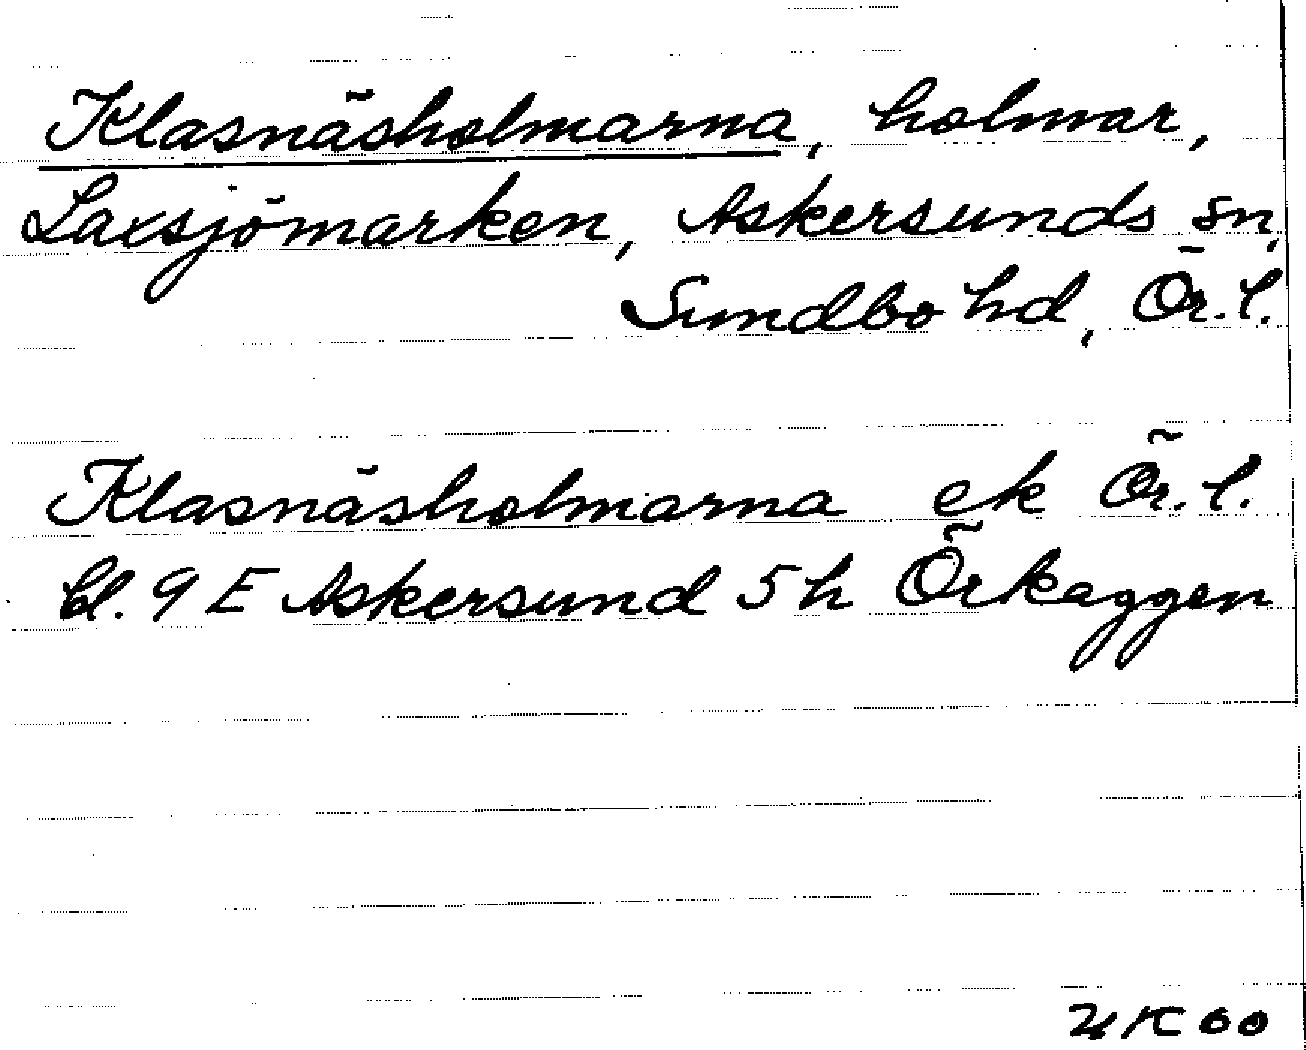 Klasnäsholmarna, holmar,
Laxsjömarken, Askersunds sn,
Sundbo hd, Ör.l.
Klasnäsholmarna ek Ör.l.
bl. 9 E Askersund 5 h Örkaggen